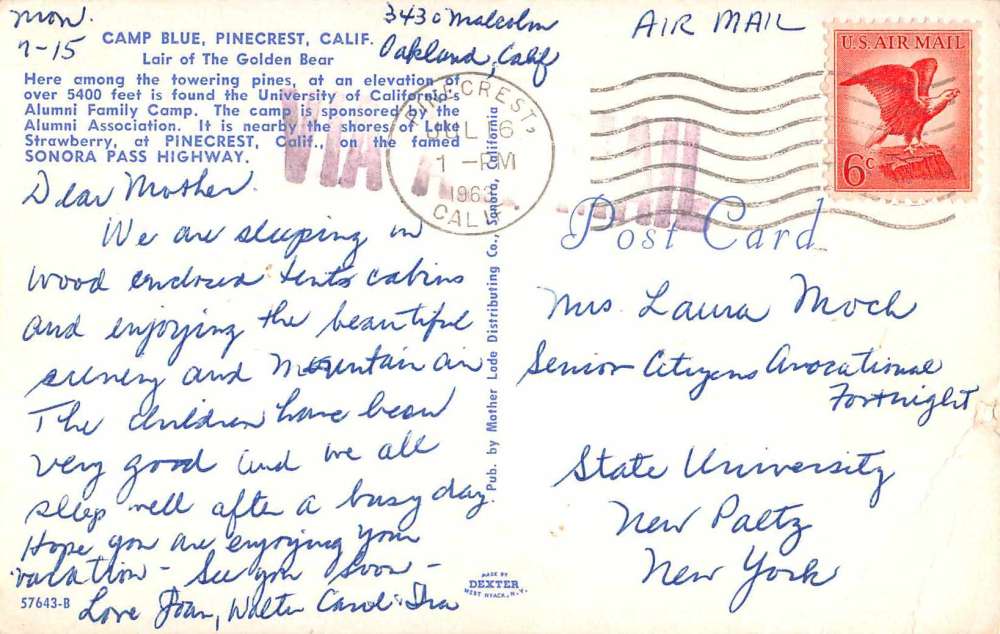 Mon.
7-15
3430 Malcolm
Oakland, Calif
AIR MAIL
CAMP BLUE, PINECREST, CALIF.
Lair of The Golden Bear
Here among the towering pines, at an elevation of
over 5400 feet is found the University of California's
Alumni Family Camp. The camp is sponsored by the
Alumni Association. It is nearby the shores of Lake
Strawberry, at PINECREST, Calif., on the famed
SONORA PASS HIGHWAY.
VIA AIR MAIL
PINECREST,
JUL 16
1 -PM
1963
CALIF.
U.S. AIR MAIL
6c
Post Card
Dear Mother.
We are sleeping in
wood enclosed tents cabins
and enjoying the beautiful
scenery and Mountain air
The children have been
very good and we all
sleep well after a busy day.
Hope you are enjoying your
vacation - See you soon -
Love Joan, Walter Carol Ira
Pub. by Mother Lode Distributing Co., Sonora, California
Mrs Laura Moch
Senior Citizens Avocational
Fortnight
State University
New Paltz
New York
57643-B
MADE BY
DEXTER
WEST NYACK, N.Y.